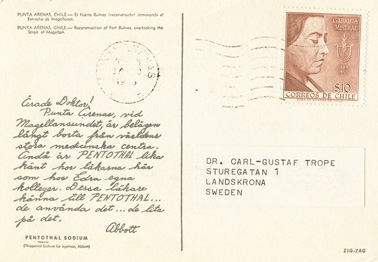 PUNTA ARENAS, CHILE.— El Fuerte Bulnes (reconstruido) dominando el
Estrecho de Magallanes.
PUNTA ARENAS, CHILE.— Reconstruction of Fort Bulnes, overlooking the
Strait of Magellan.
Ärade Doktor!
Punta Arenas, vid
Magellansundet, är belägen
långt borta från världens
stora medicinska centra.
Ändå är PENTOTHAL lika
känt hos läkarna här
som hos Edra egna
kolleger. Dessa läkare
känna till PENTOTHAL...
de använda det... de lita
på det.
Abbott
PENTOTHAL SODIUM
(Thiopental Sodium for injection, Abbott)
E° 10
CORREOS DE CHILE
DR. CARL-GUSTAF TROPE
STUREGATAN 1
LANDSKRONA
SWEDEN
ZIG-ZAG